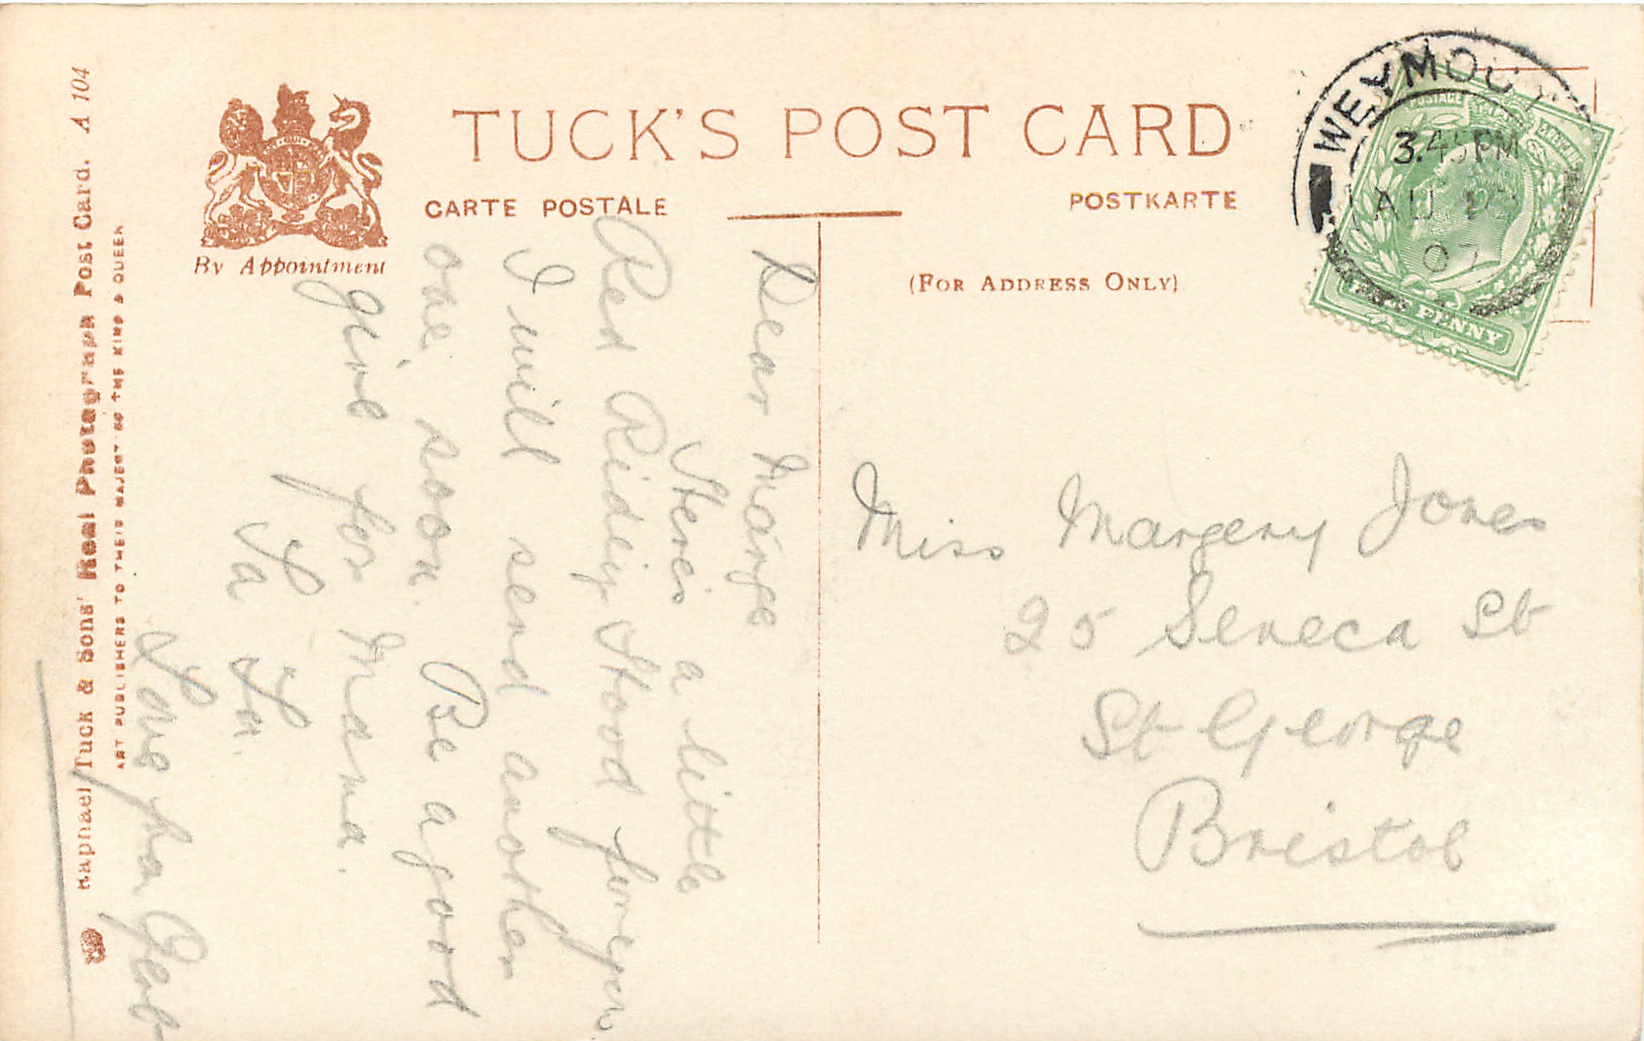 TUCK'S POST CARD
CARTE POSTALE
POSTKARTE
By Appointment
(FOR ADDRESS ONLY)
WEYMOUT
3.45 PM
AU
07
POSTAGE
PENNY
Raphael Tuck & Sons' Real Photograph Post Card. A 104
ART PUBLISHERS TO THEIR MAJESTIES THE KING & QUEEN
Dear Marge
Here's a little
Red Ridey Hood for you
I will send another
one, soon. Be a good
girl for Mama.
Ta Ta.
Love from
Miss Margery Jones
25 Seneca St
St George
Bristol